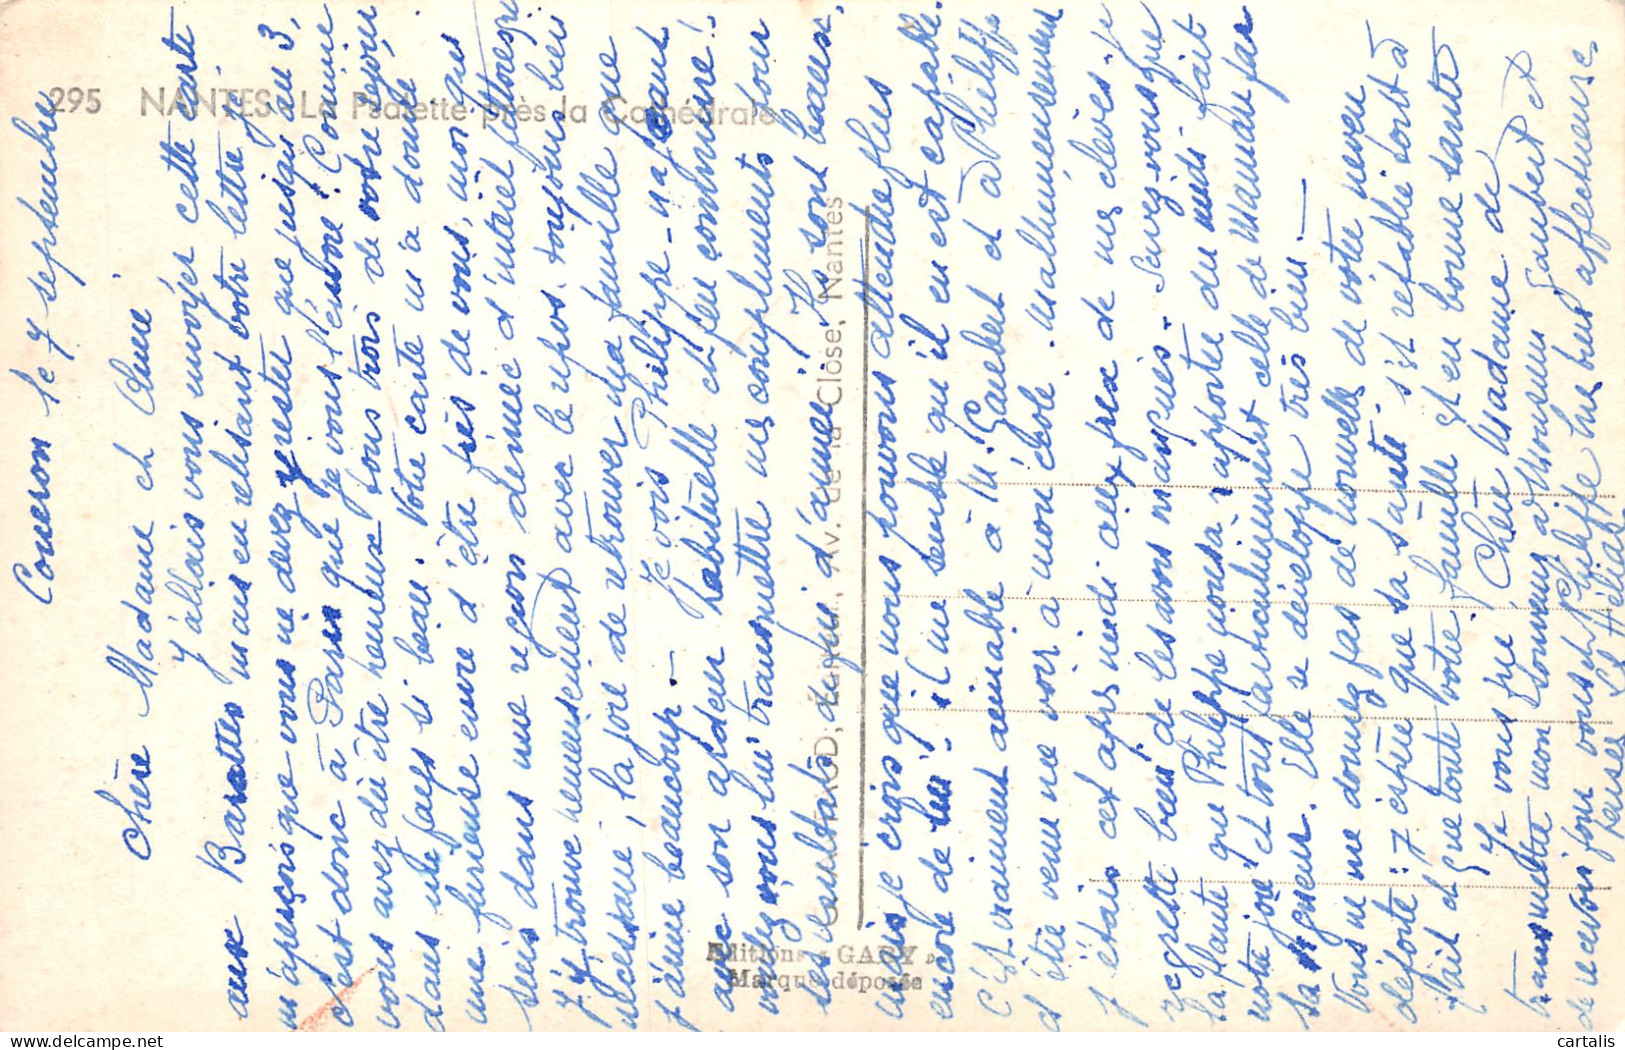 295 NANTES. La Psalette près la Cathédrale
Editions « GABY »
Marque déposée
Av. de la Close, Nantes
Coueron le 7 septembre
Chère Madame et Amie
J'allais vous envoyer cette carte
aux Barattes mais en relisant votre lettre je
m'aperçois que vous ne devez y rester que jusqu'au 3,
c'est donc à Paris que je vous l'envoie ! Comme
vous avez dû être heureux tous trois de votre séjour
dans un pays si beau. Votre carte m'a donné
une furieuse envie d'être près de vous, moi qui
suis dans une région dénuée d'intérêt pittoresque
J'y trouve heureusement avec le repos, toujours bien
nécessaire, la joie de retrouver ma famille que
j'aime beaucoup. Je vois Philippe
avec son ardeur habituelle et peu commune !
voulez vous lui transmettre mes compliments pour
ses résultats d'année ! Ils sont beaux,
mais je crois que nous pouvons attendre plus
encore de lui. il me semble qu'il en est capable.
C'est vraiment aimable à M. Gaubert et à Philippe
d'être venu me voir à mon école. Malheureusement
j'étais cet après midi aux prix de mes élèves. Je
regrette bien de les avoir manqués. Savez vous que
la plante que Philippe nous a rapportée du midi fait
notre joie et tout particulièrement celle de Maman par
sa vigueur. Elle se développe très bien.
Vous ne me donnez pas de nouvelles de votre neveu
j'espère que sa santé s'est rétablie tout à
fait et que toute votre famille est en bonne santé
Je vous prie, Chère Madame de
transmettre mon bon souvenir à Monsieur Gaubert et
de recevoir pour vous et Philippe mes bien affectueuses
pensées